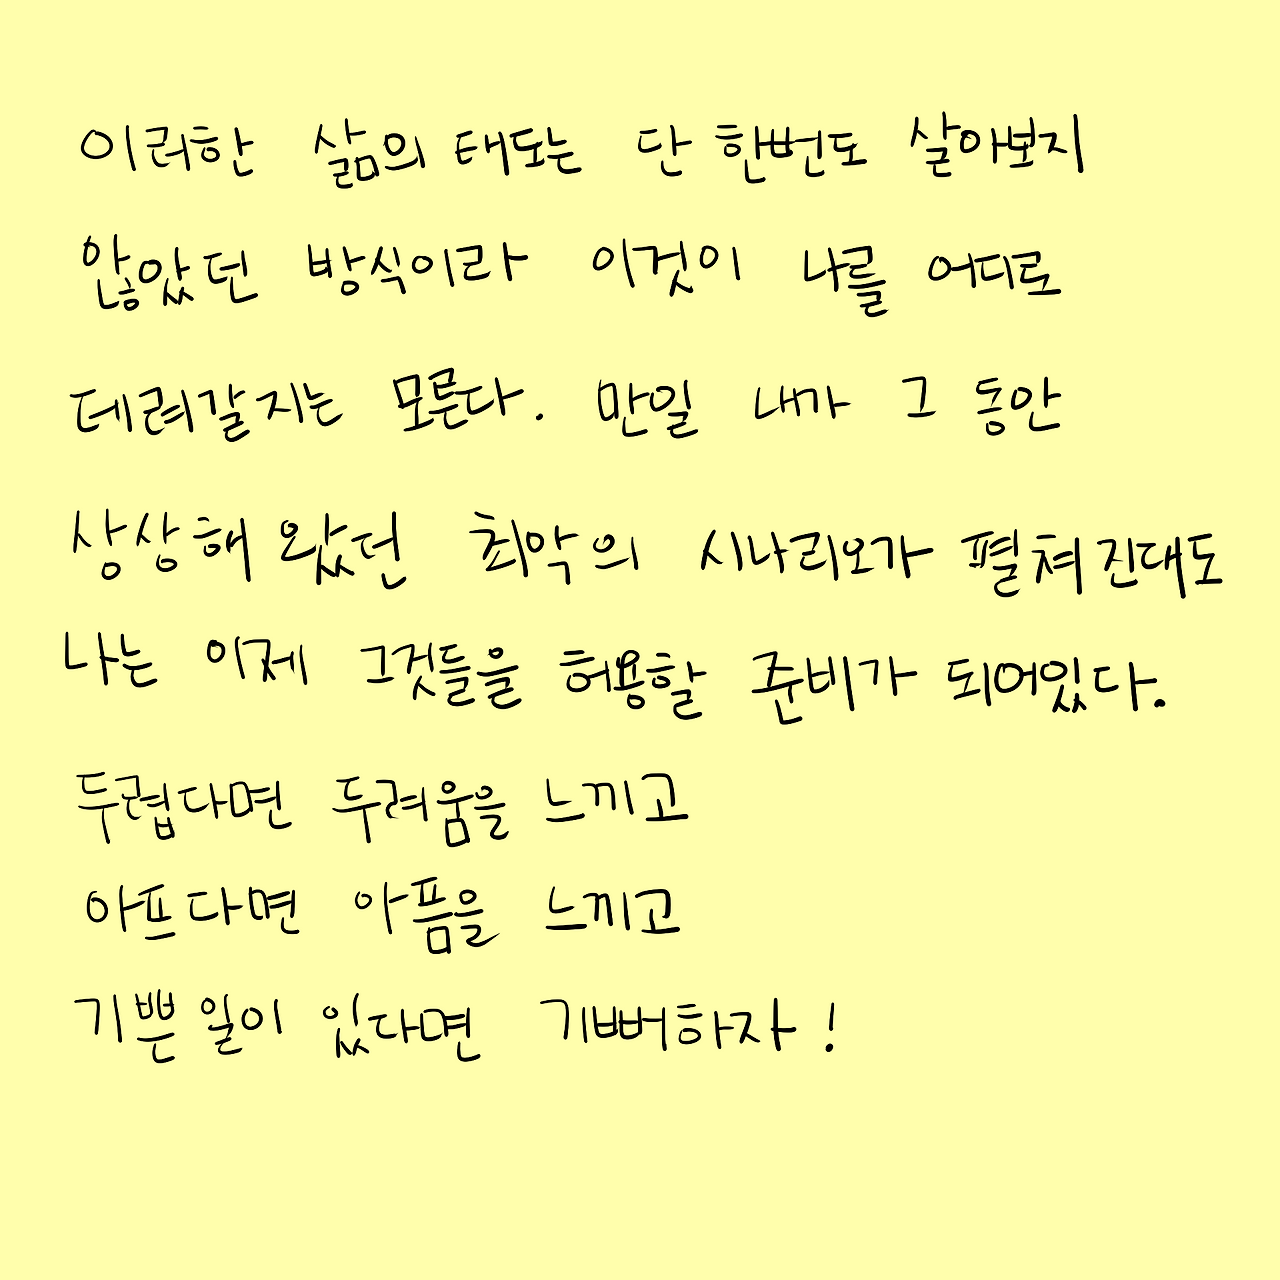 이러한 삶의 태도는 단 한번도 살아보지
않았던 방식이라 이것이 나를 어디로
데려갈지는 모른다. 만일 내가 그 동안
상상해 왔던 최악의 시나리오가 펼쳐진대도
나는 이제 그것들을 허용할 준비가 되어있다.
두렵다면 두려움을 느끼고
아프다면 아픔을 느끼고
기쁜 일이 있다면 기뻐하자!